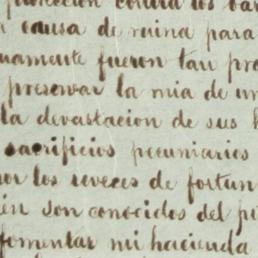 proteccion contra los bar
causa de ruina para
uamente fueron tan pre
preservar la mia de un
la devastacion de sus h
sacrificios pecuniarios
por los reveces de fortun
én son conocidos del pú
fomentar mi hacienda